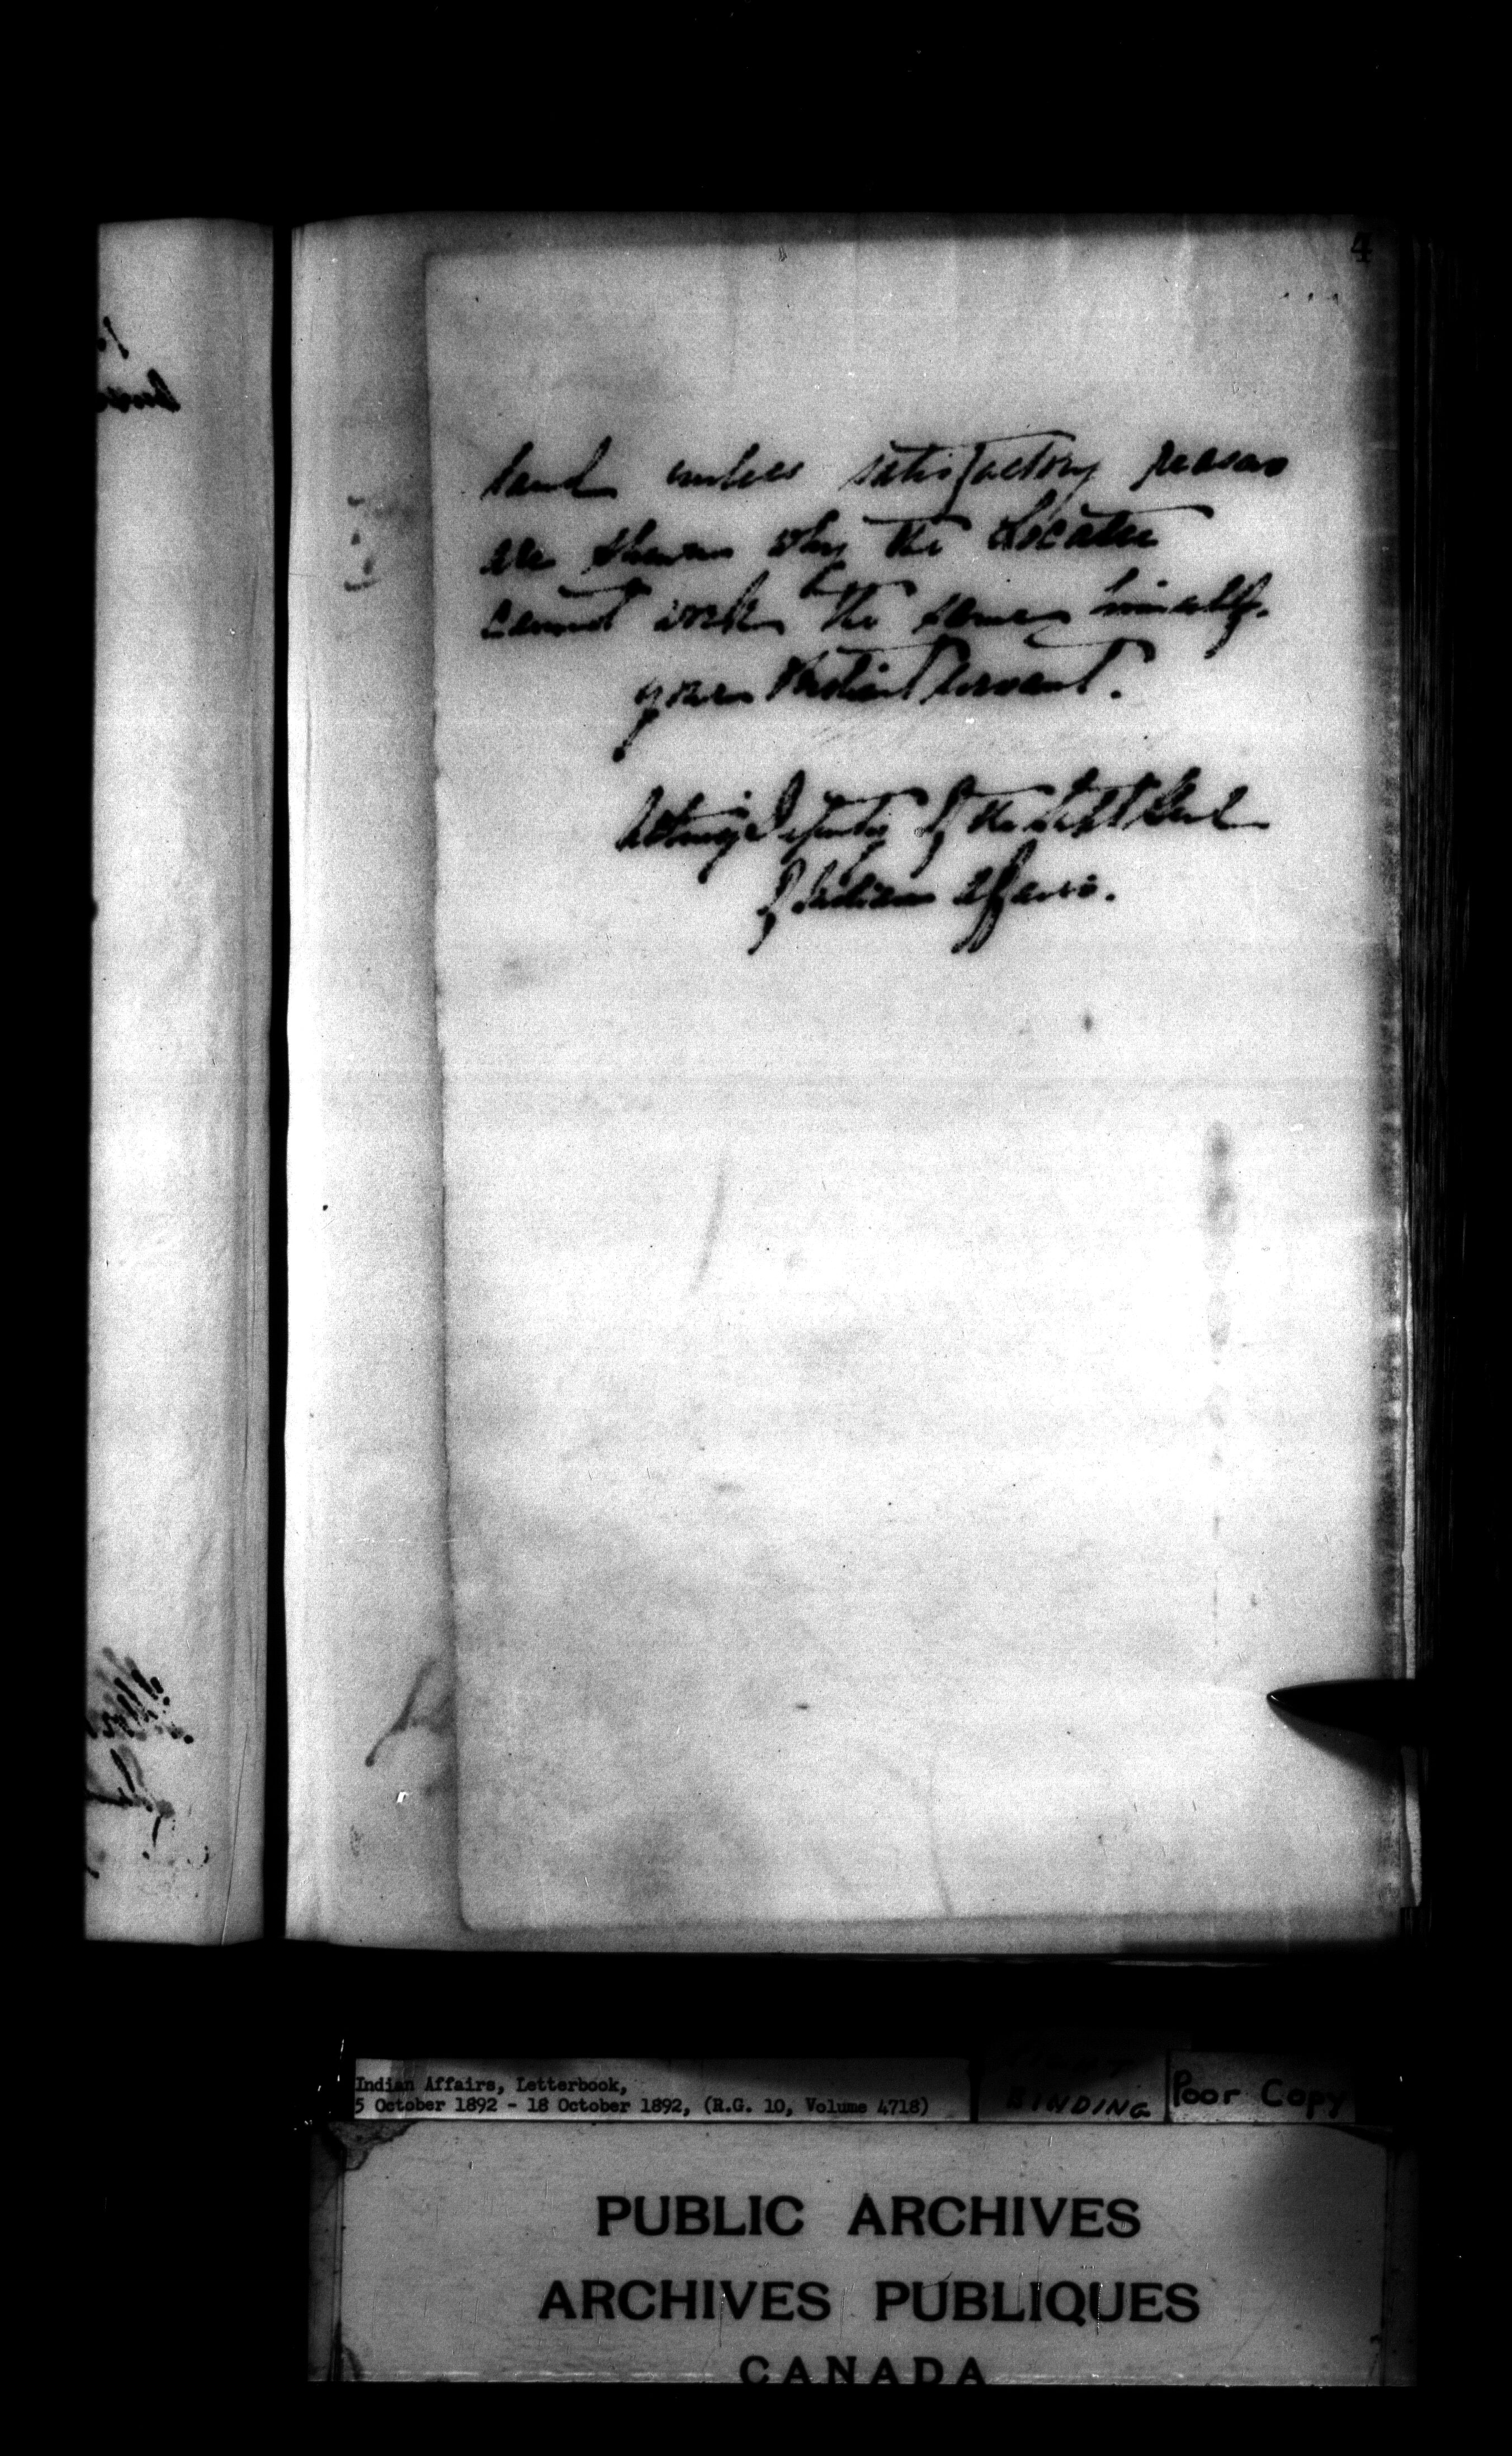 4
land unless satisfactory reasons
are shewn why the Locatee
cannot work the same himself.
your obedient servant.
Acting Deputy of the Supt Genl
of Indian Affairs.
Indian Affairs, Letterbook,
5 October 1892 - 18 October 1892, (R.G. 10, Volume 4718)
BINDING
Poor Copy
PUBLIC ARCHIVES
ARCHIVES PUBLIQUES
CANADA